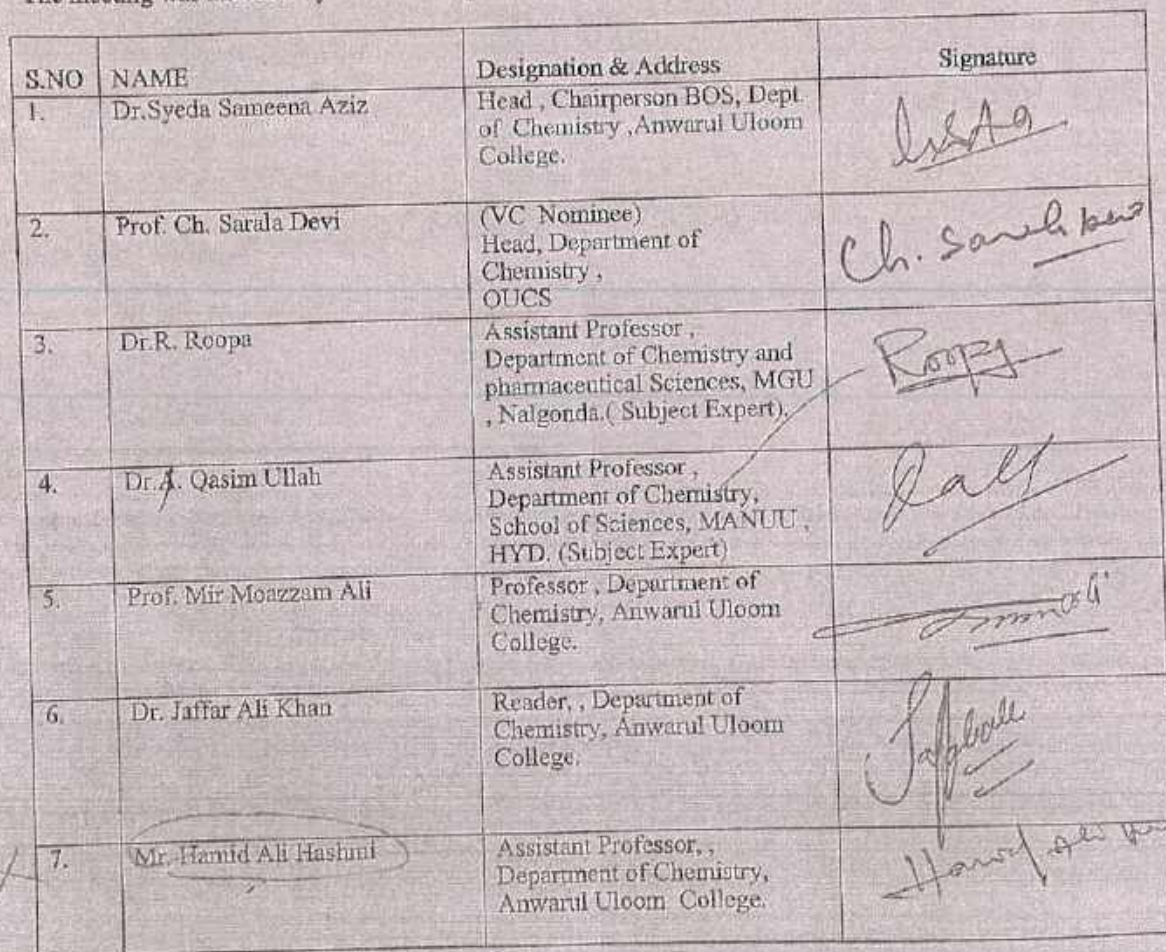 S.NO NAME Designation & Address Signature
1. Dr.Syeda Sameena Aziz Head , Chairperson BOS, Dept
of Chemistry ,Anwarul Uloom
College.
2. Prof. Ch. Sarala Devi (VC Nominee) Ch. Sarala Devi
Head, Department of
Chemistry ,
OUCS
3. Dr.R. Roopa Assistant Professor , Roopa
Department of Chemistry and
pharmaceutical Sciences, MGU
, Nalgonda.( Subject Expert).
4. Dr.A. Qasim Ullah Assistant Professor ,
Department of Chemistry,
School of Sciences, MANUU ,
HYD. (Subject Expert)
5. Prof. Mir Moazzam Ali Professor , Department of
Chemistry, Anwarul Uloom
College.
6. Dr. Jaffar Ali Khan Reader, , Department of
Chemistry, Anwarul Uloom
College.
7. Mr. Hamid Ali Hashmi Assistant Professor, ,
Department of Chemistry,
Anwarul Uloom College.